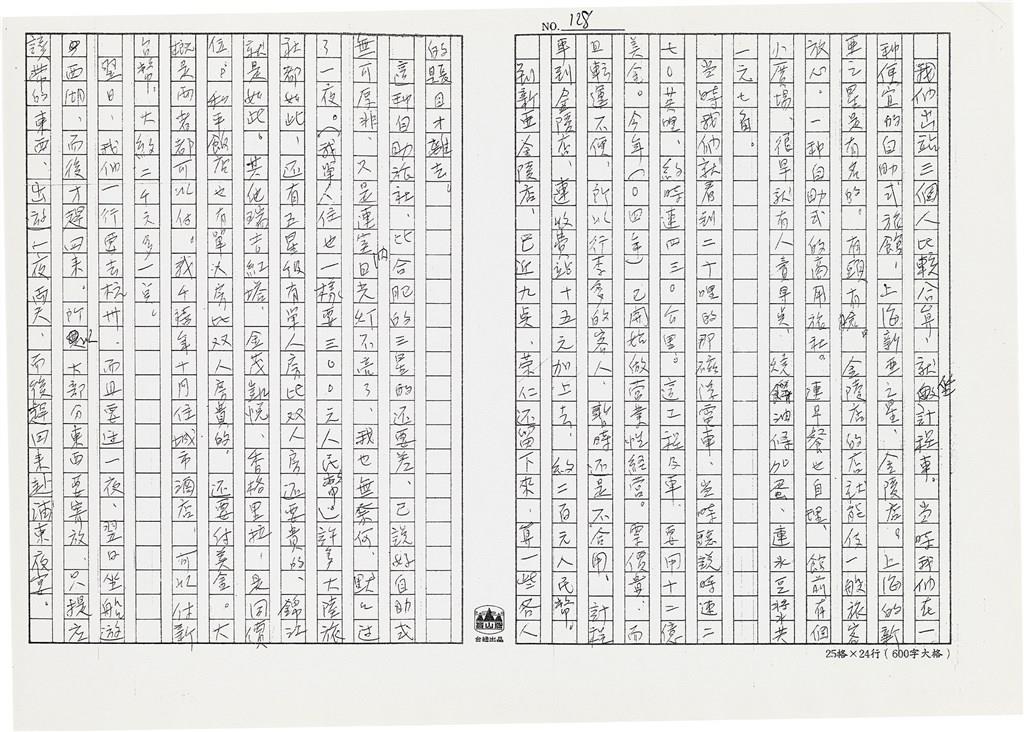 NO. 128
我們出站三個人比較合算,就坐計程車。當時我們在一
和便宜的自助式旅館,上海新亞之星,金陵店。上海的新
亞之星是有名的。有頭有臉。金陵店的店就能住一般旅客
放心。一種自助式的商用旅社。連早餐也自理,館前有個
小廣場,很早就有人賣早點,燒餅油條加蛋、連冰豆漿共
一元七角。
當時我們就看到二十哩的那磁浮電車,當時聽說時速二
七〇英哩,約時速四三〇公里。這工程及車,要用十二億
美金。今年(〇四年)已開始做營業性經營。票價貴,而
且轉運不便,所以行李多的客人,暫時还是不合用,計程
車到金陵店、連收費站十五元加上去,約二百元人民幣。
到新亞金陵店,已近九點,榮仁还留下來,算一些各人
的賬目才離去。
這種自助旅社,比合肥的三星的还要差,已說好自助式
無可厚非,又是連室內日光灯不亮了,我也無奈何,默々过
了一夜。(我單人住也一樣要三〇〇元人民幣。)許多大陸旅
社都如此,还有五星級有單人房比双人房还要貴的,錦江
就是如此。其他瑞吉紅塔、金茂凱悅、香格里拉,是同價
位,和平飯店也有單人房比双人房貴的。还要付美金。大
概是兩者都可以付。我千禧年十月住城市酒店,可以付新
台幣,大約二千元多一点。
翌日,我們一行要去杭州,而且要住一夜,翌日坐船游
西湖,而後才趕回來。所以大部分東西要寄放,只提应
該帶的東西,出游一夜兩天,而後趕回來赴浦東夜宴。
高山牌
台綠出品
25格×24行(600字大格)